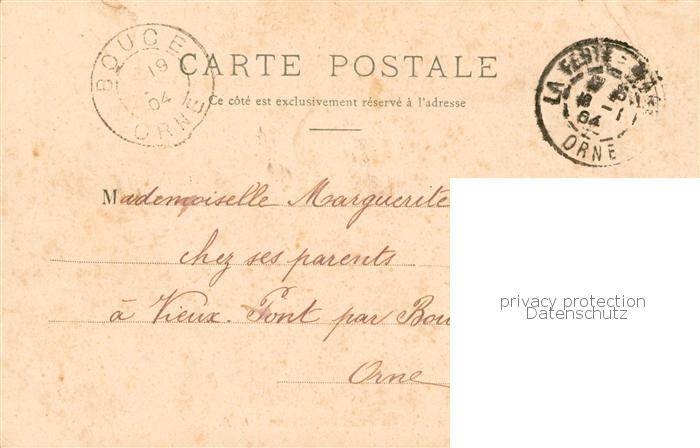 BOUCE
19
04
ORNE
CARTE POSTALE
Ce côté est exclusivement réservé à l'adresse
LA FERTE-MACE
04
ORNE
Mademoiselle Marguerite
chez ses parents
à Vieux-Pont par Bou
Orne
privacy protection
Datenschutz